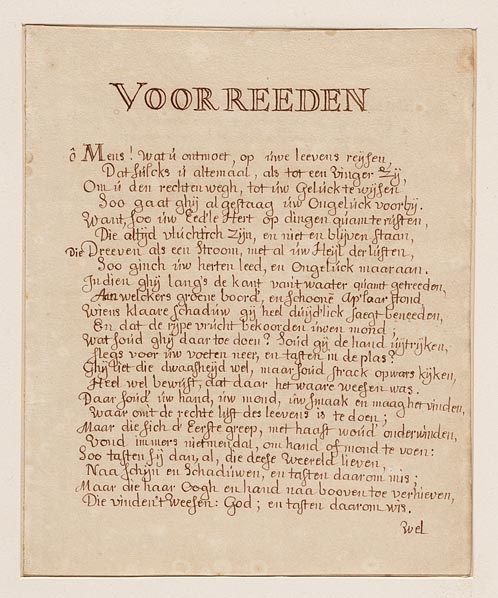 VOORREEDEN
ô Mens! Wat ú ontmoet, op úwe leevens reÿsen,
Dat súlcks ú altemaal, als tot een vinger zÿ,
Om ú den rechten wegh, tot úw Gelúck te wÿsen
Soo gaat ghÿ algestaag úw Ongelúck voorbÿ.
Want, soo úw Eed'le Hert op dingen quam te rústen,
Die altÿd vlúchtich zÿn, en niet en blÿven staan,
Die Dreeven als een Stroom, met al úw Heÿl der lústen,
Soo ginch úw herten leed, en Ongelúck maar aan.
Indien ghÿ lang's de kant van't waater quamt getreeden,
Aan welckers groene boord, en schoone Ap'laar stond
Wiens klaare schadúw gÿ heel dúÿd'lick saegt beneeden,
En dat de rÿpe vrúcht bekoorden úwen mond;
Wat soúd ghÿ daar toe doen? Soúd gÿ de hand úÿtrÿken,
slegs voor úw voeten neer, en tasten in de plas?
Ghÿ liet die dwaasheÿd wel, maar soúd strack opwars kÿken,
Heel wel bewúst, dat daar het waare weesen was.
Daar soúd' úw hand, úw mond, úw smaak en maag het vinden,
Waar omt de rechte lúst des leevens is te doen;
Maar die sich d' Eerste greep, met haast woúd' onderwinden,
Vond immers niet mendal, om hand of mond te voen:
Soo tasten sÿ dan, al, die deese Weereld lieven,
Naa schÿn en Schadúwen, en tasten daarom mis;
Maar die haar Oogh en hand naa booven toe verhieven,
Die vinden't Weesen: God; en tasten daarom wis.
Wel